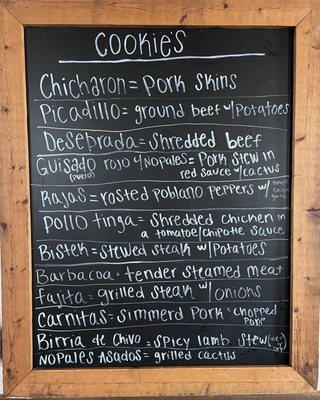 COOKIE'S
Chicharon = Pork skins
Picadillo = ground beef w/Potatoes
Desebrada = Shredded beef
Guisado rojo w/Nopales = Pork stew in
(Puerco) red sauce w/cactus
Rajas = rosted poblano peppers w/
Pollo tinga = Shredded chicken in
a tomatoe/chipotle sauce
Bistek = stewed steak w/Potatoes
Barbacoa = tender steamed meat
fajita = grilled steak w/ onions
Carnitas = simmerd Pork "chopped
Pork"
Birria de Chivo = spicy lamb stew
NOPALES ASADOS = grilled cactus